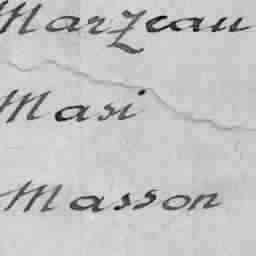 Marzeau
Masi
Masson